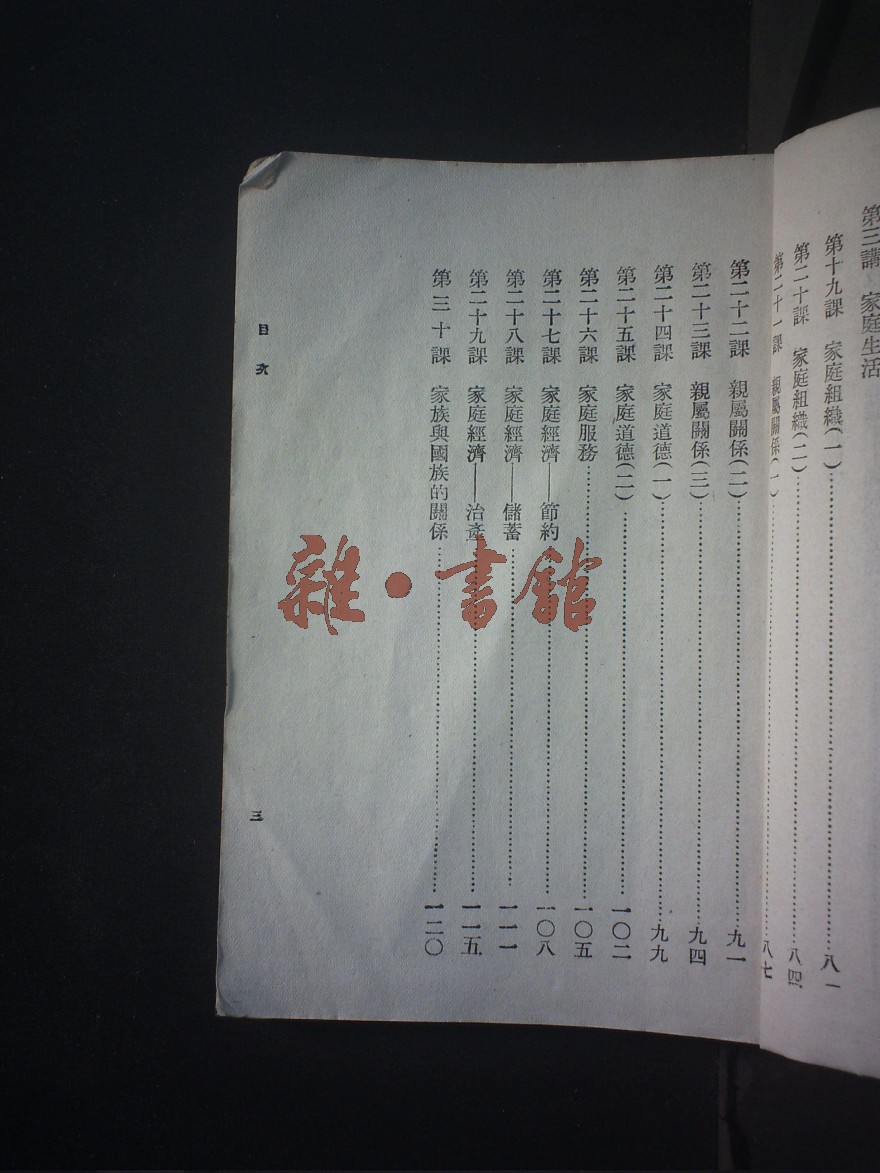 第三講 家庭生活
第十九課 家庭組織(一)……八一
第二十課 家庭組織(二)……八四
第二十一課 親屬關係(一)……八七
第二十二課 親屬關係(二)……九一
第二十三課 親屬關係(三)……九四
第二十四課 家庭道德(一)……九九
第二十五課 家庭道德(二)……一〇二
第二十六課 家庭服務……一〇五
第二十七課 家庭經濟——節約……一〇八
第二十八課 家庭經濟——儲蓄……一一一
第二十九課 家庭經濟——治產……一一五
第三十課 家族與國族的關係……一二〇
目次
三
雜·書館